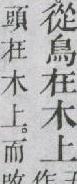 從鳥在木上
頭在木上。而